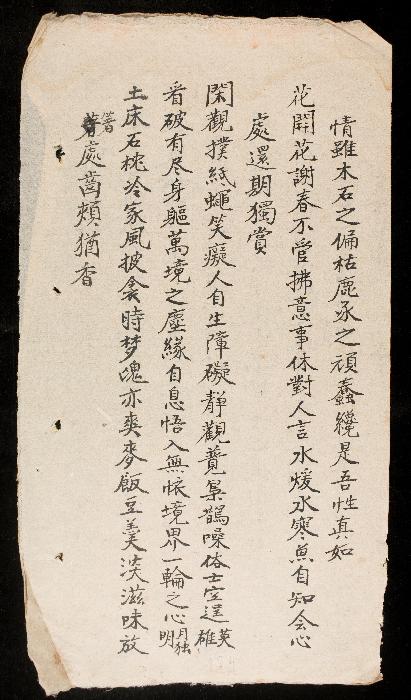 情雖木石之偏枯鹿豕之頑蠢纔是吾性真如
花開花謝春不管拂意事休對人言水煖水寒魚自知会心
處還期獨賞
閑觀撲紙蠅笑癡人自生障礙靜觀競巢鵲嘆俗士空逞英雄
看破有尽身軀萬境之塵緣自息悟入無懷境界一輪之心月独明
土床石枕冷家風披衾時梦魂亦爽麥飯豆羹淡滋味放
箸處齒頰猶香